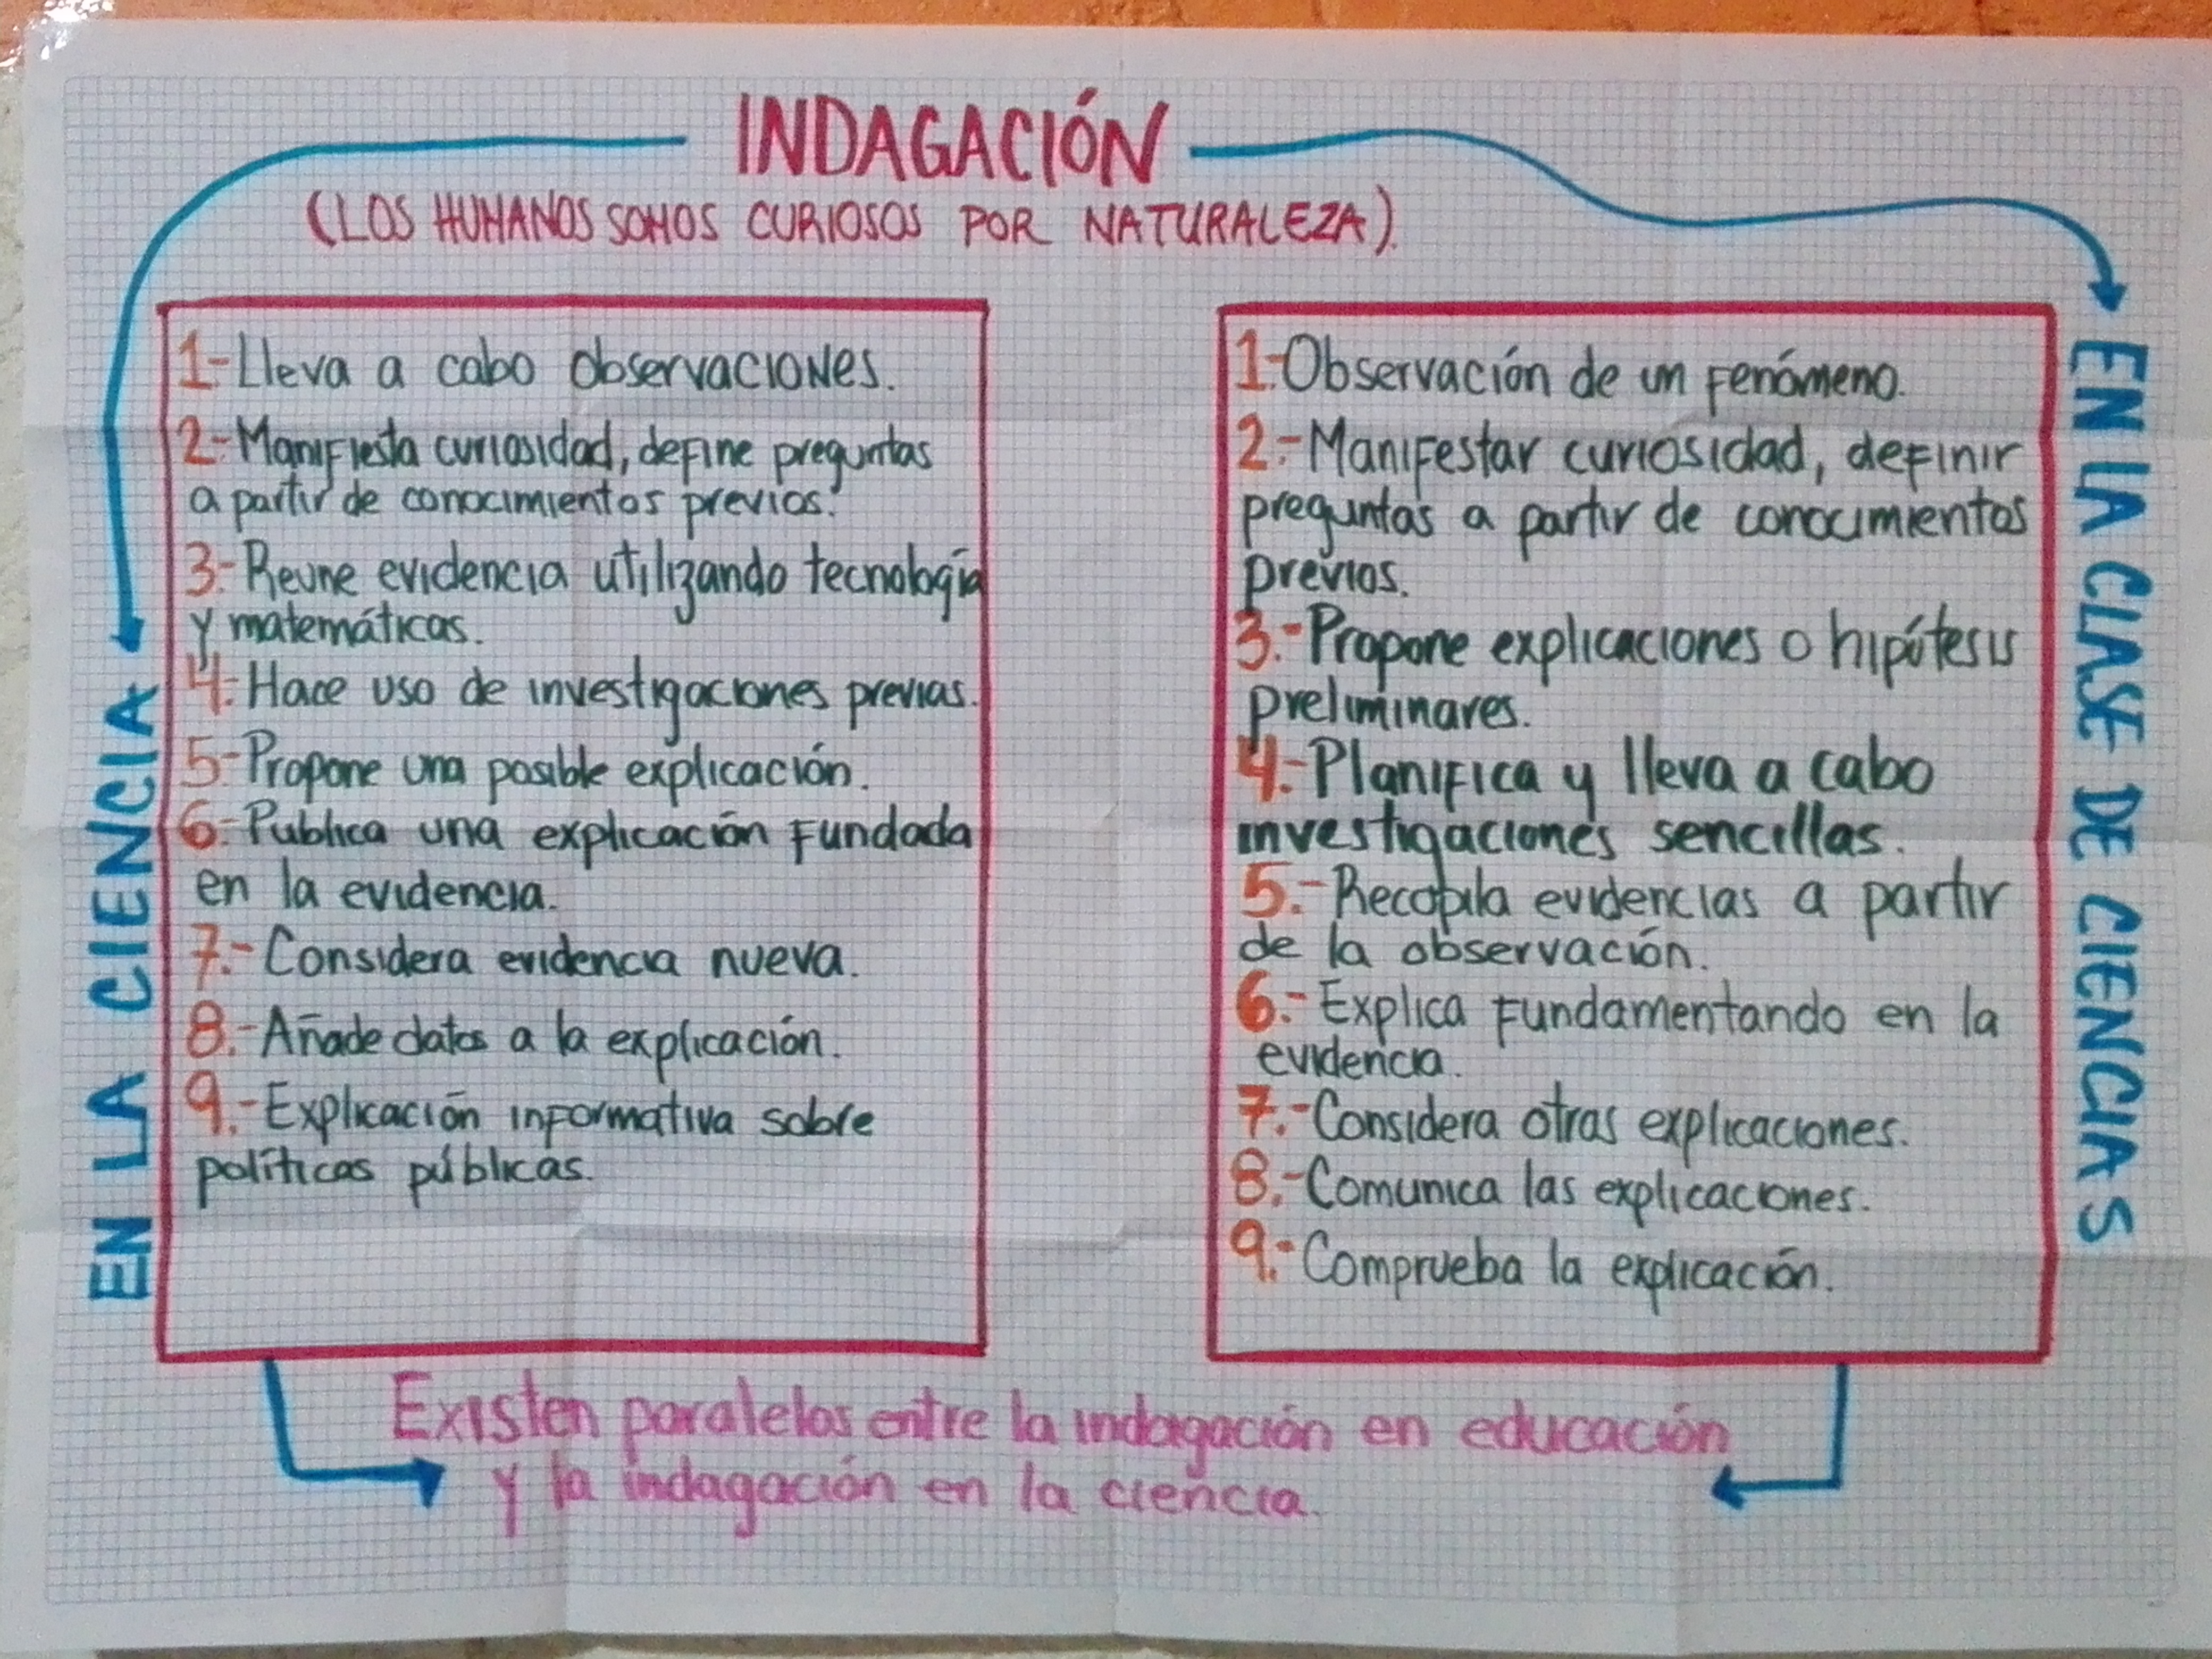 INDAGACIÓN
(LOS HUMANOS SOMOS CURIOSOS POR NATURALEZA).
EN LA CIENCIA
1-Lleva a cabo observaciones.
2.-Manifiesta curiosidad, define preguntas
a partir de conocimientos previos.
3.-Reune evidencia utilizando tecnología
y matemáticas.
4.-Hace uso de investigaciones previas.
5-Propone una posible explicación.
6.-Publica una explicación fundada
en la evidencia.
7.-Considera evidencia nueva.
8.-Añade datos a la explicación.
9.-Explicación informativa sobre
políticas públicas.
EN LA CLASE DE CIENCIAS
1.-Observación de un fenómeno.
2.-Manifestar curiosidad, definir
preguntas a partir de conocimientos
previos.
3.-Propone explicaciones o hipótesis
preliminares.
4.-Planifica y lleva a cabo
investigaciones sencillas.
5.-Recopila evidencias a partir
de la observación.
6.-Explica fundamentando en la
evidencia.
7.-Considera otras explicaciones.
8.-Comunica las explicaciones.
9.-Comprueba la explicación.
Existen paralelos entre la indagación en educación
y la indagación en la ciencia.